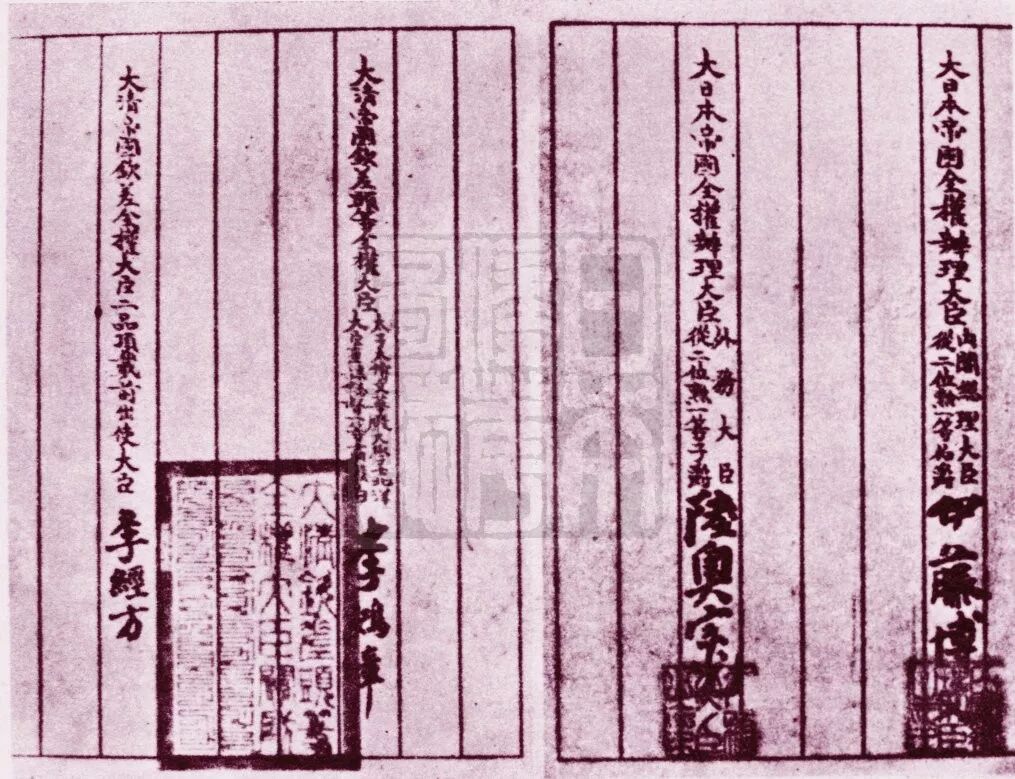 大日本帝國全權辦理大臣
內閣總理大臣
從二位勲一等伯爵
伊藤博
大日本帝國全權辦理大臣
外務大臣
從二位勲一等子爵
陸奥宗光
大清帝國欽差頭等全權大臣
太子太傅文華殿大學士北洋
大臣直隸總督一等肅毅伯
李鴻章
大清帝國欽差全權大臣二品頂戴前出使大臣
李經方
大清欽差頭等
全權大臣關防